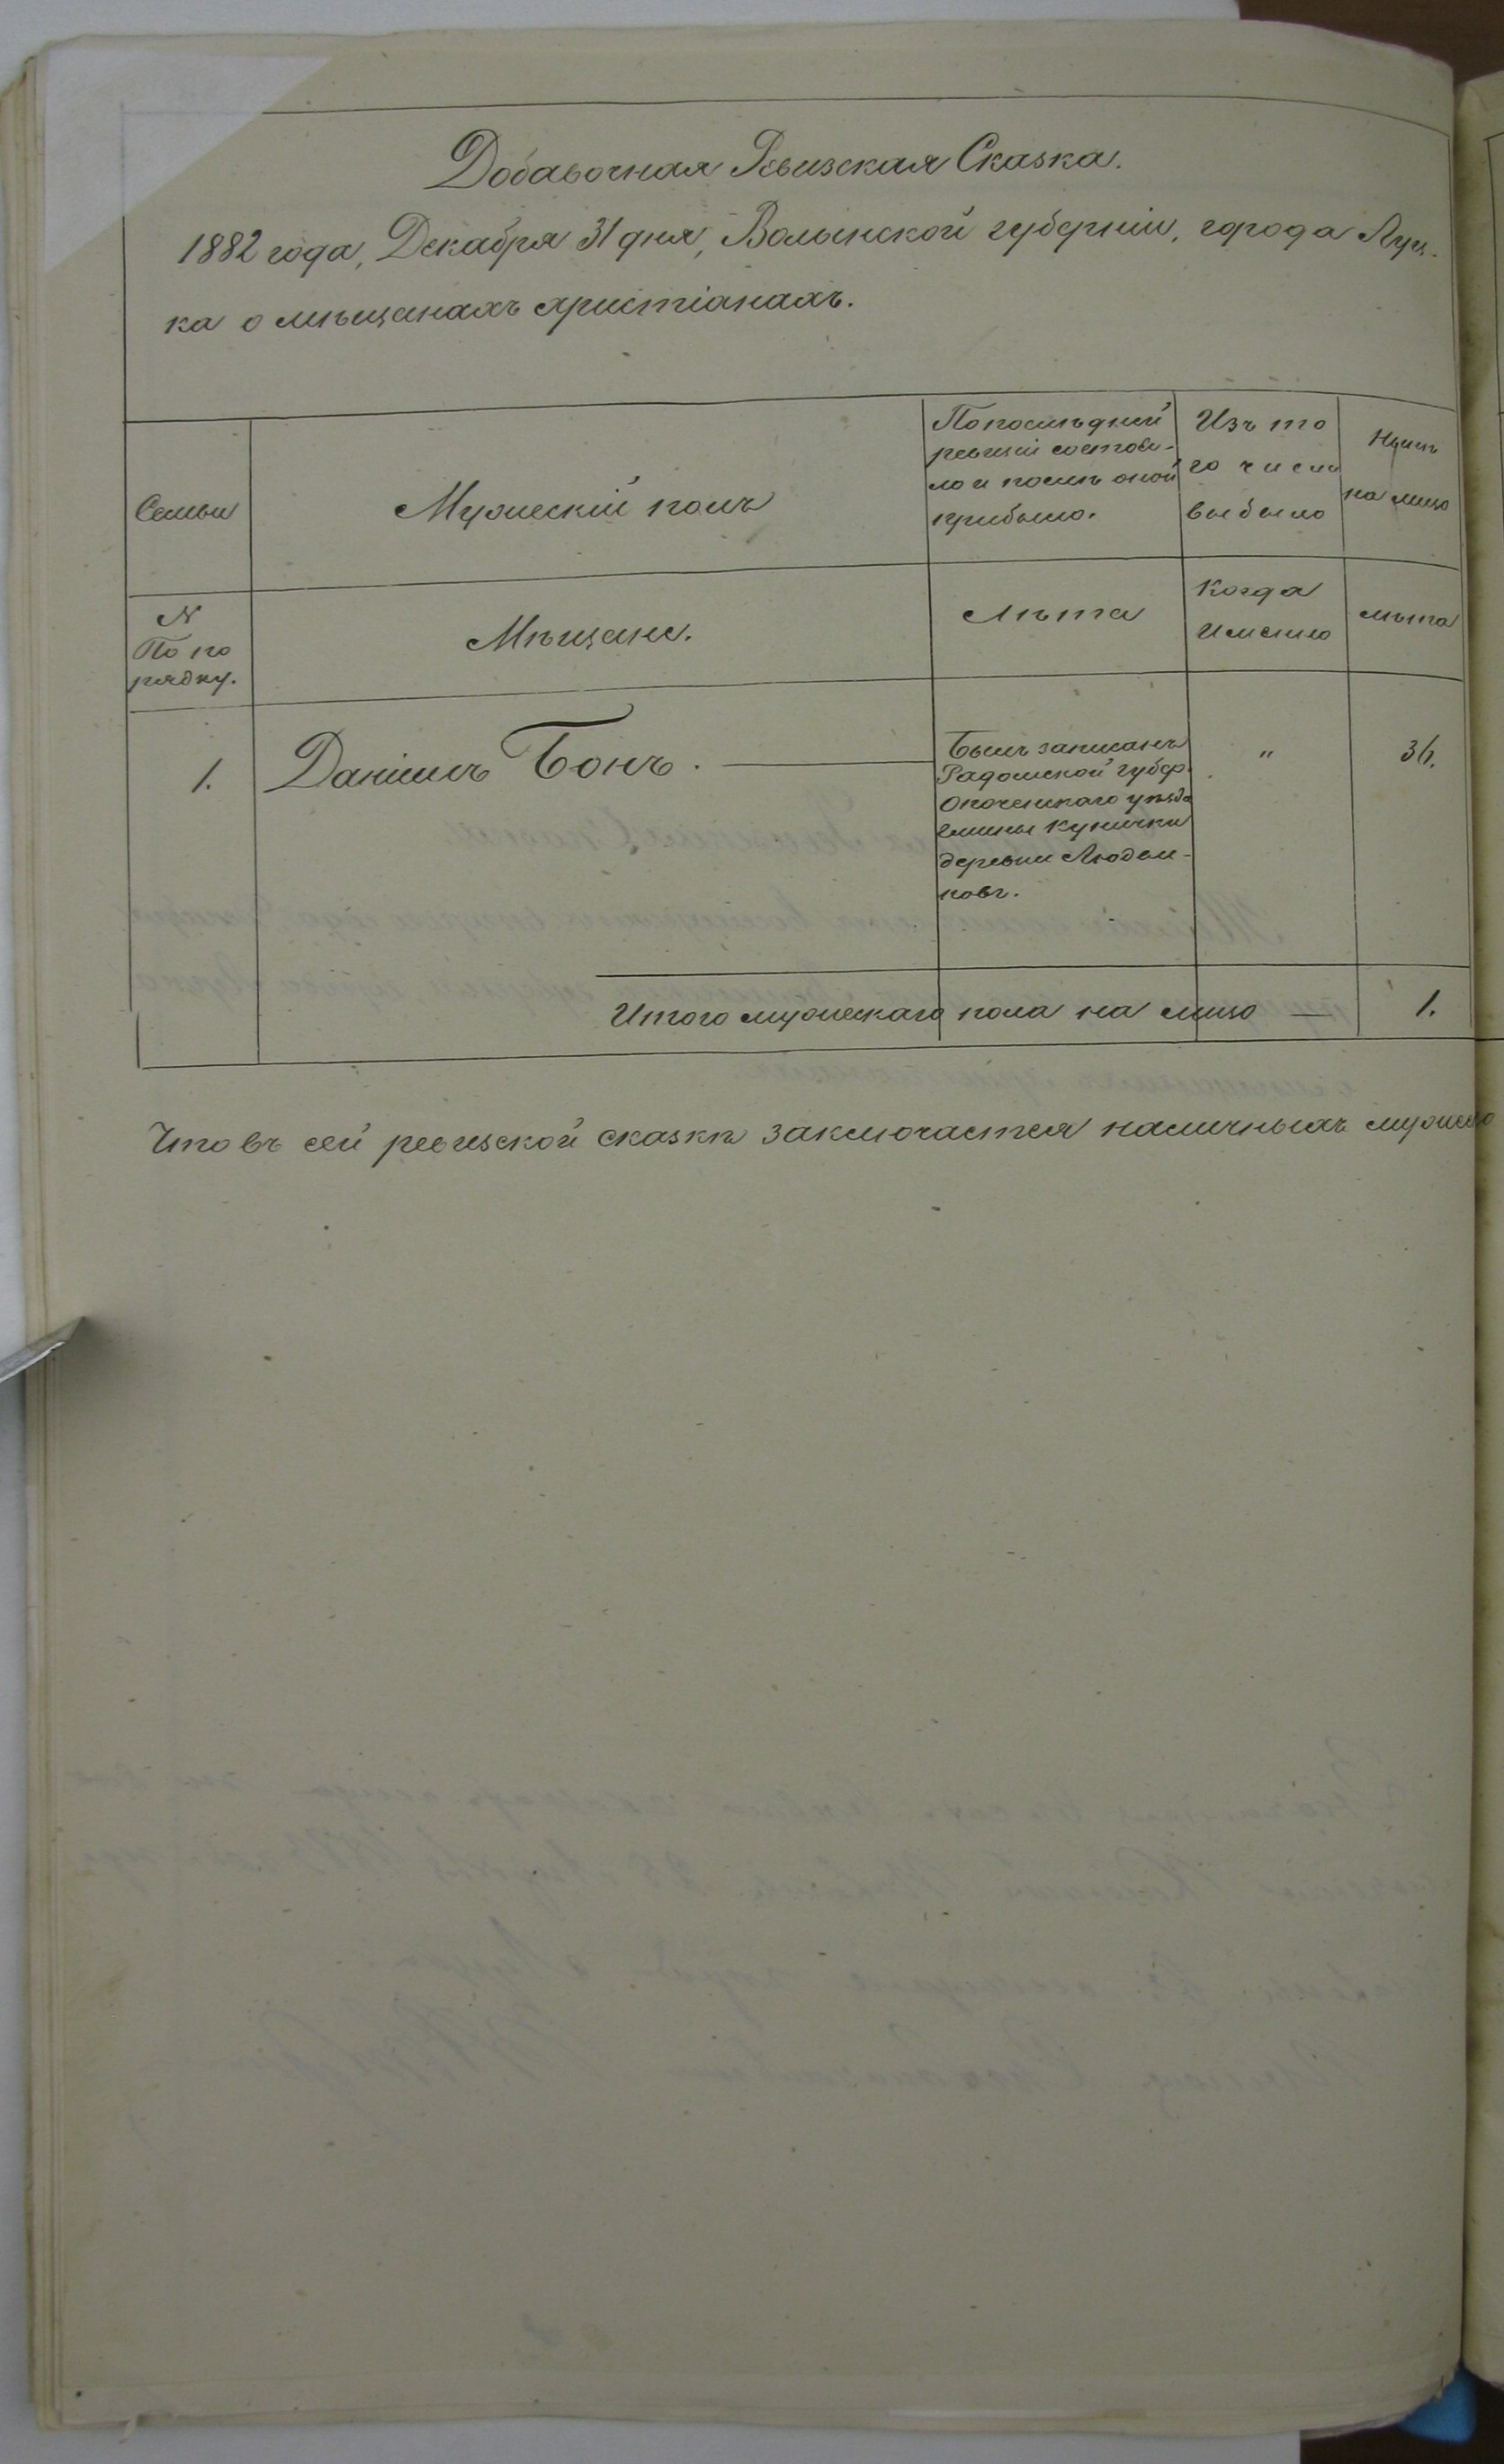 Добавочная Ревизская Сказка.
1882 года, Декабря 31 дня, Волынской губерніи, города Луц-
ка о мѣщанахъ христіанахъ.
Семьи
Мужескій полъ
По послѣдней
ревизіи состоя-
ло и послѣ оной
прибыло.
Изъ то
го числа
выбыло
Нынѣ
на лицо
N
По по
рядку.
Мѣщане.
Лѣта
Когда
Именно
лѣта
1.
Даніилъ Бонъ.
Былъ записанъ
Радомской губер.
Опоченскаго уѣзда
гмины Кунички
деревни Людви-
новъ.
"
36.
Итого мужескаго пола на лицо — 1.
Что въ сей ревизской сказкѣ заключается наличныхъ мужеска